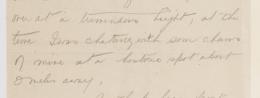 over at a tremendous height, at the
time I was chatting with some chums
of mine at a historic spot about
2 miles away,